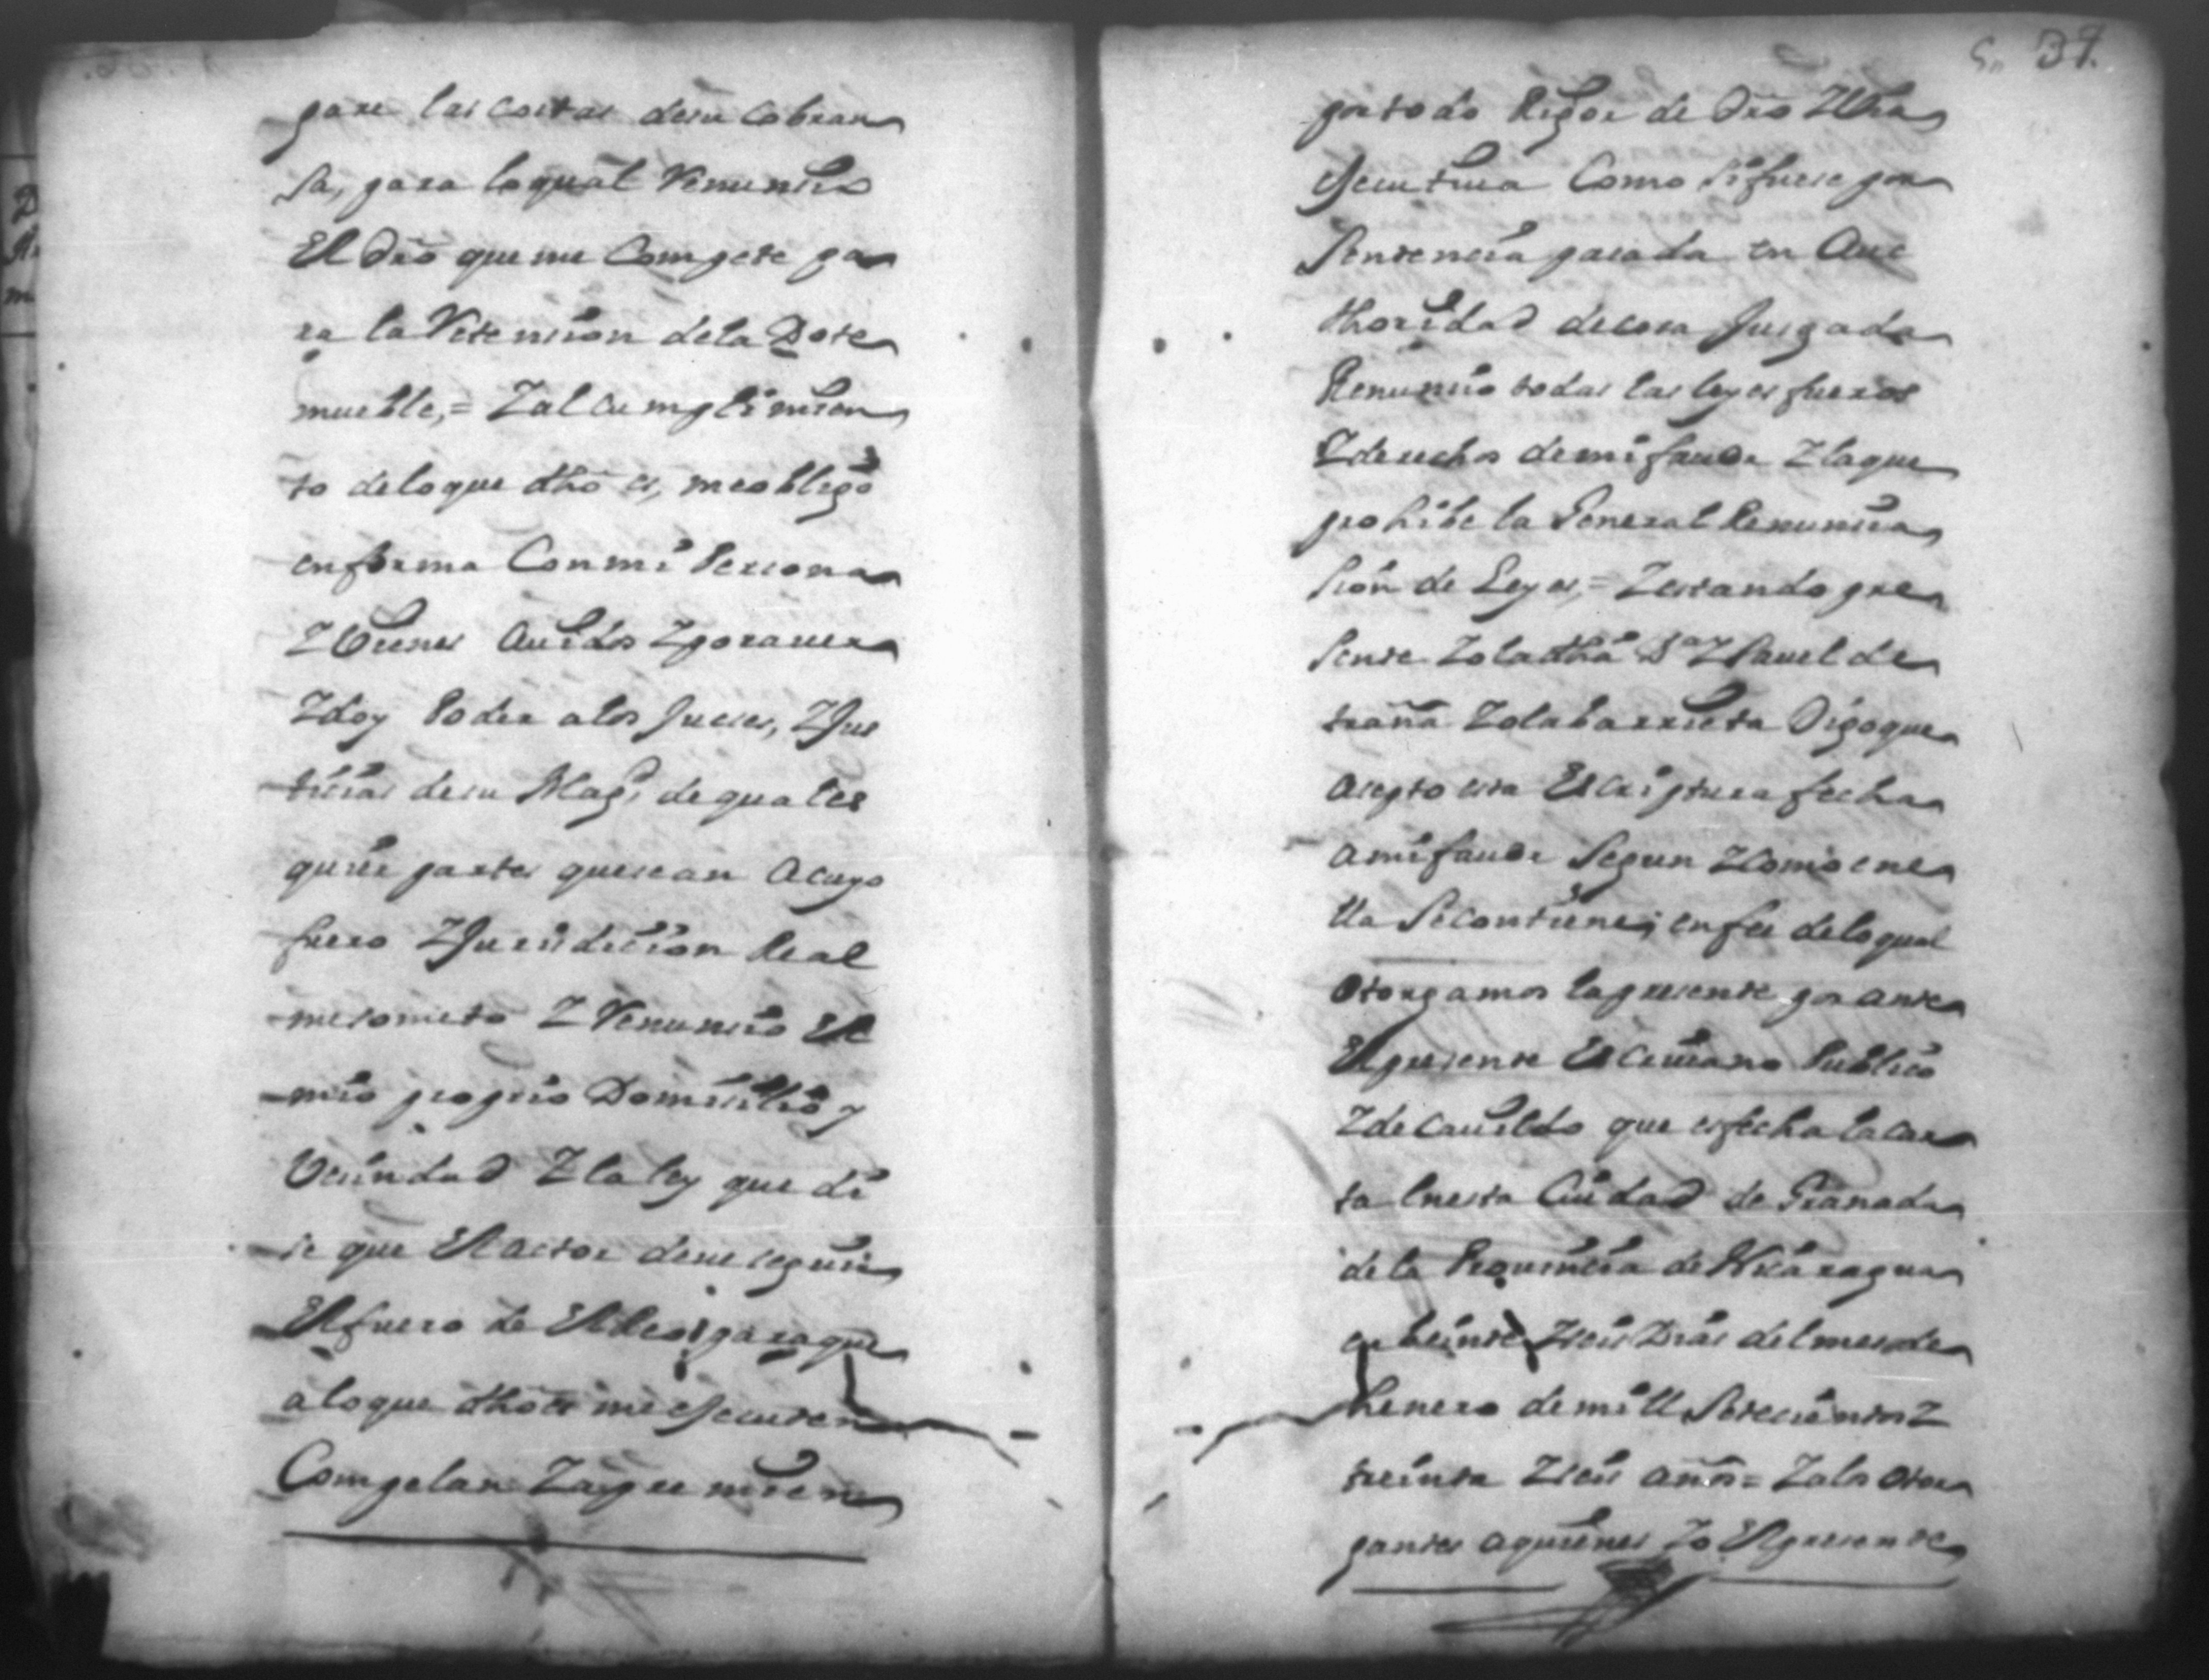 pare las costas desu cobran
sa, para loqual Renuncio
El dr̃o queme Compete pa
ra la Retencion dela Dote
mueble, = Y al cumplimien
to deloque dhõ es, meobligo
enforma Conmi Persona
Y Vienes avidos Y poraver
Y doy Poder alos Jueces, Y Jus
ticias desu Magd. dequales
quier partes quesean acuyo
fuero Y Jurisdiccion Real
mesometo Y Renuncio El
mio proprio Domicilio y
Vecindad Y la ley que di
se que El actor deve seguir
El fuero de El Reo; paraque
aloque dhõ es me ejecuten
Compelan Y apremien
39.
portodo Rigor de Dr̃o Y Via
Ejecutiva Como sifuese por
Sentencia pasada en Auc
thoridad decosa Jusgada
Renuncio todas las leyes fueros
Y derechos demi favor Y laque
prohibe la General Renuncia
sion de Leyes, = Y estando pre
sente Yo la dhã Da. Ysavel de
traña Yolabarrieta Digoque
acepto esta Escriptura fecha
amifavor Segun Y Como ene
lla Secontiene; enfee deloqual
otorgamos lapresente por ante
Elpresente Escrivano Publico
Y deCavildo que esfecha lacar
ta Enesta Ciudad de Granada
dela Provincia de Nicaragua
en beinte Y seis Dias delmes de
henero demill Setecientos Y
treinta Y seis añõs = Yalos otor
gantes aquienes Yo Elpresente